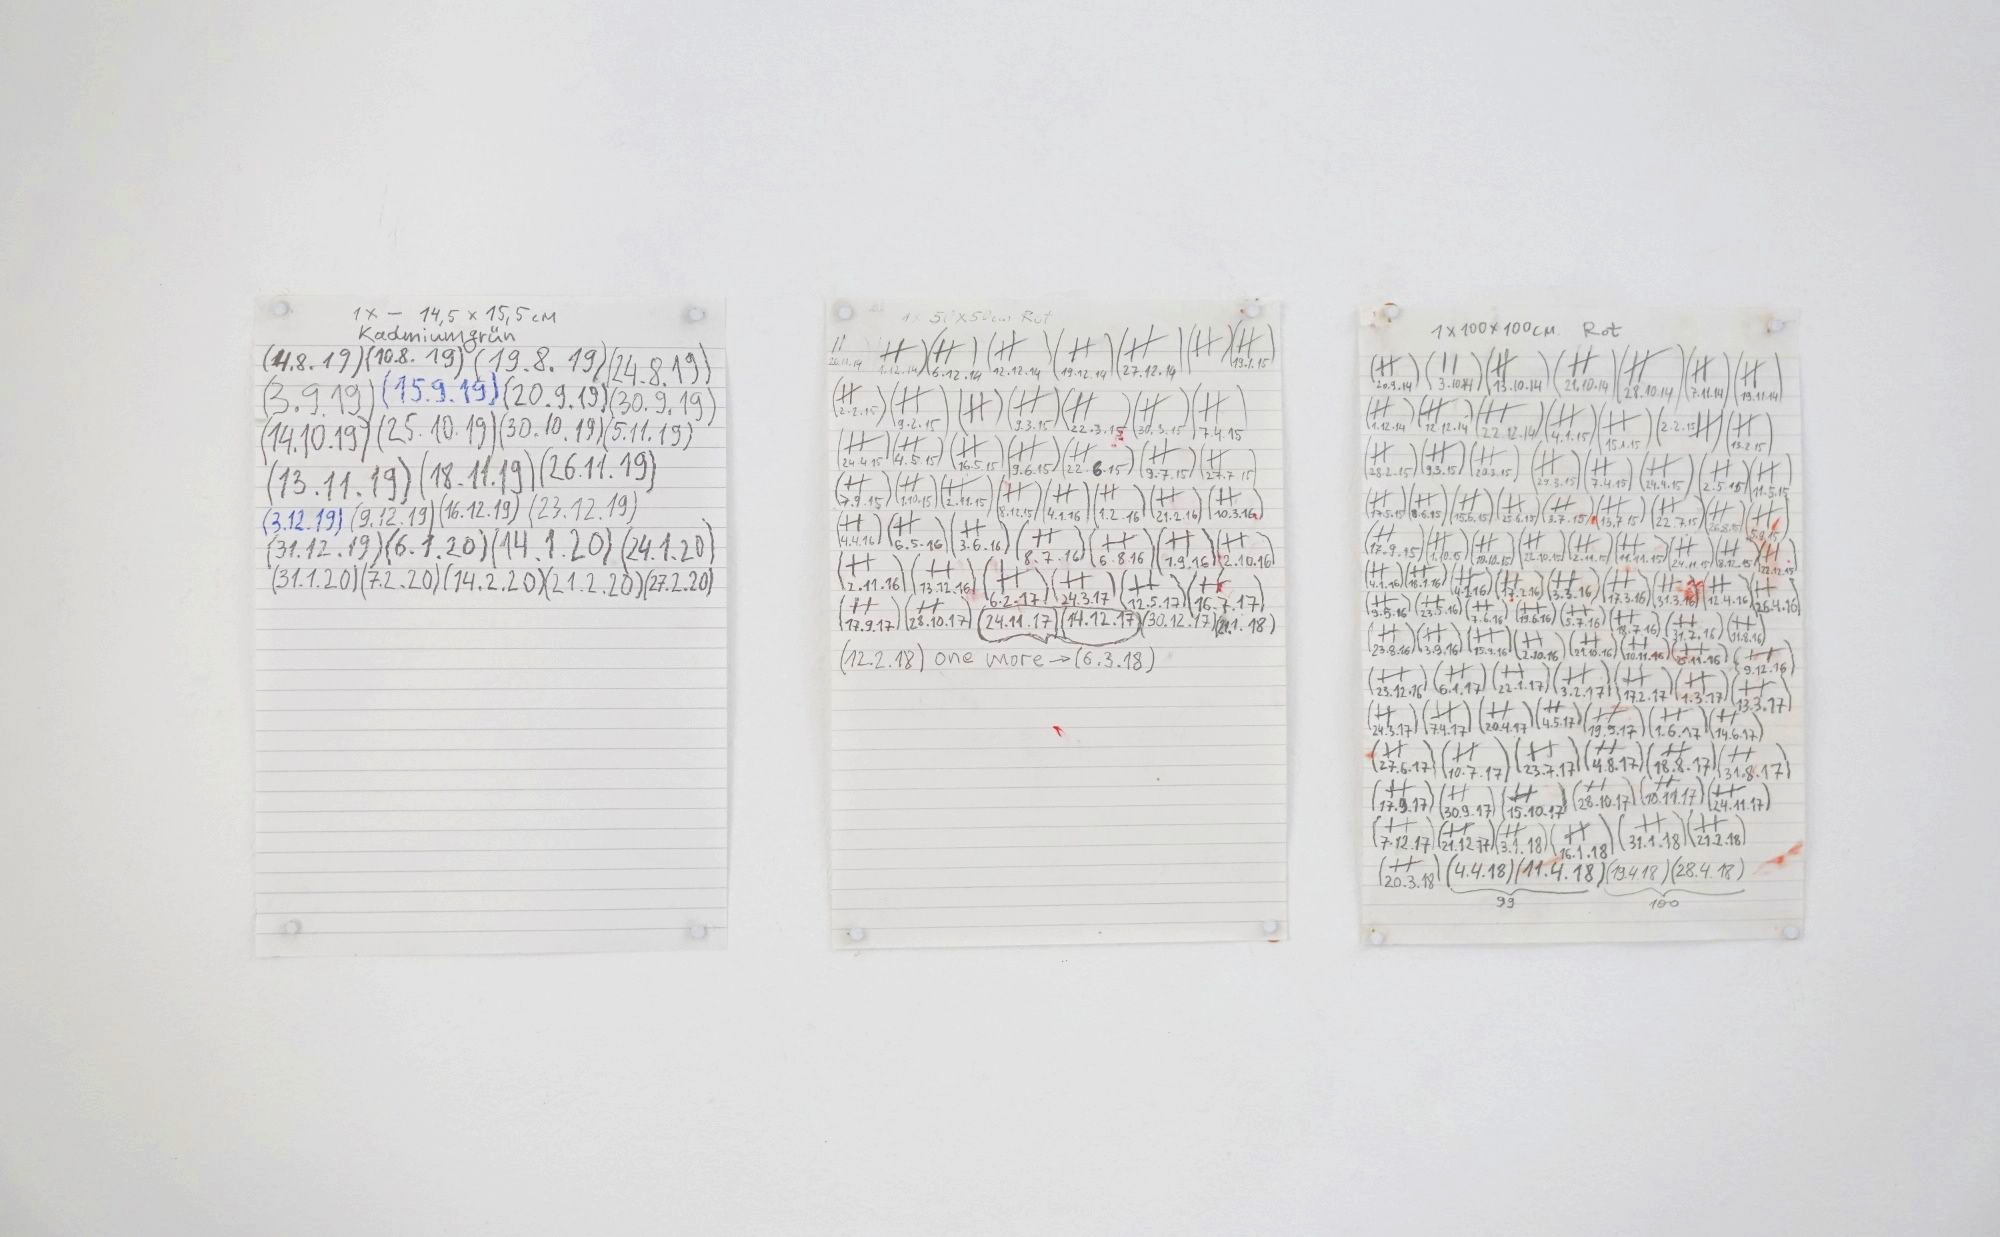 1x – 14,5 x 15,5 cm
Kadmiumgrün
(4.8.19)(10.8.19)(19.8.19)(24.8.19)
(3.9.19)(15.9.19)(20.9.19)(30.9.19)
(14.10.19)(25.10.19)(30.10.19)(5.11.19)
(13.11.19)(18.11.19)(26.11.19)
(3.12.19)(9.12.19)(16.12.19)(23.12.19)
(31.12.19)(6.1.20)(14.1.20)(24.1.20)
(31.1.20)(7.2.20)(14.2.20)(21.2.20)(27.2.20)
1x 50x50cm Rot
26.11.14 1.12.14)(6.12.14 (12.12.14 (19.12.14)(27.12.14 ( )(19.1.15)
(2.2.15)(9.2.15)( )(9.3.15)(22.3.15)(30.3.15)(7.4.15)
(24.4.15)(4.5.15)(16.5.15)(9.6.15)(22.6.15)(9.7.15)(27.7.15)
(7.9.15)(1.10.15)(2.11.15)(8.12.15)(4.1.16)(1.2.16)(21.2.16)(10.3.16)
(4.4.16)(6.5.16)(3.6.16)(8.7.16)(6.8.16)(1.9.16)(2.10.16)
(2.11.16)(13.12.16)(6.2.17)(24.3.17)(12.5.17)(16.7.17)
(17.9.17)(28.10.17)(24.11.17)(14.12.17)(30.12.17)(21.1.18)
(12.2.18) one more → (6.3.18)
1x100x100cm Rot
(20.9.14)(3.10.14)(13.10.14)(21.10.14)(28.10.14)(7.11.14)(19.11.14)
(1.12.14)(12.12.14)(22.12.14)(4.1.15)(15.1.15)(2.2.15)(13.2.15)
(28.2.15)(9.3.15)(20.3.15)(29.3.15)(7.4.15)(24.4.15)(2.5.15)(11.5.15)
(17.5.15)(8.6.15)(15.6.15)(25.6.15)(3.7.15)(13.7.15)(22.7.15)(26.8.15)(5.9.15)
(17.9.15)(1.10.15)(10.10.15)(22.10.15)(2.11.15)(11.11.15)(24.11.15)(8.12.15)(22.12.15)
(4.1.16)(18.1.16)(4.2.16)(17.2.16)(3.3.16)(17.3.16)(31.3.16)(12.4.16)(26.4.16)
(9.5.16)(23.5.16)(7.6.16)(19.6.16)(5.7.16)(18.7.16)(31.7.16)(11.8.16)
(23.8.16)(3.9.16)(15.9.16)(2.10.16)(21.10.16)(10.11.16)(25.11.16)(9.12.16)
(23.12.16)(6.1.17)(22.1.17)(3.2.17)(17.2.17)(1.3.17)(13.3.17)
(24.3.17)(7.4.17)(20.4.17)(4.5.17)(19.5.17)(1.6.17)(14.6.17)
(27.6.17)(10.7.17)(23.7.17)(4.8.17)(18.8.17)(31.8.17)
(17.9.17)(30.9.17)(15.10.17)(28.10.17)(10.11.17)(24.11.17)
(7.12.17)(21.12.17)(3.1.18)(16.1.18)(31.1.18)(21.2.18)
(20.3.18)(4.4.18)(11.4.18)(19.4.18)(28.4.18)
99 100